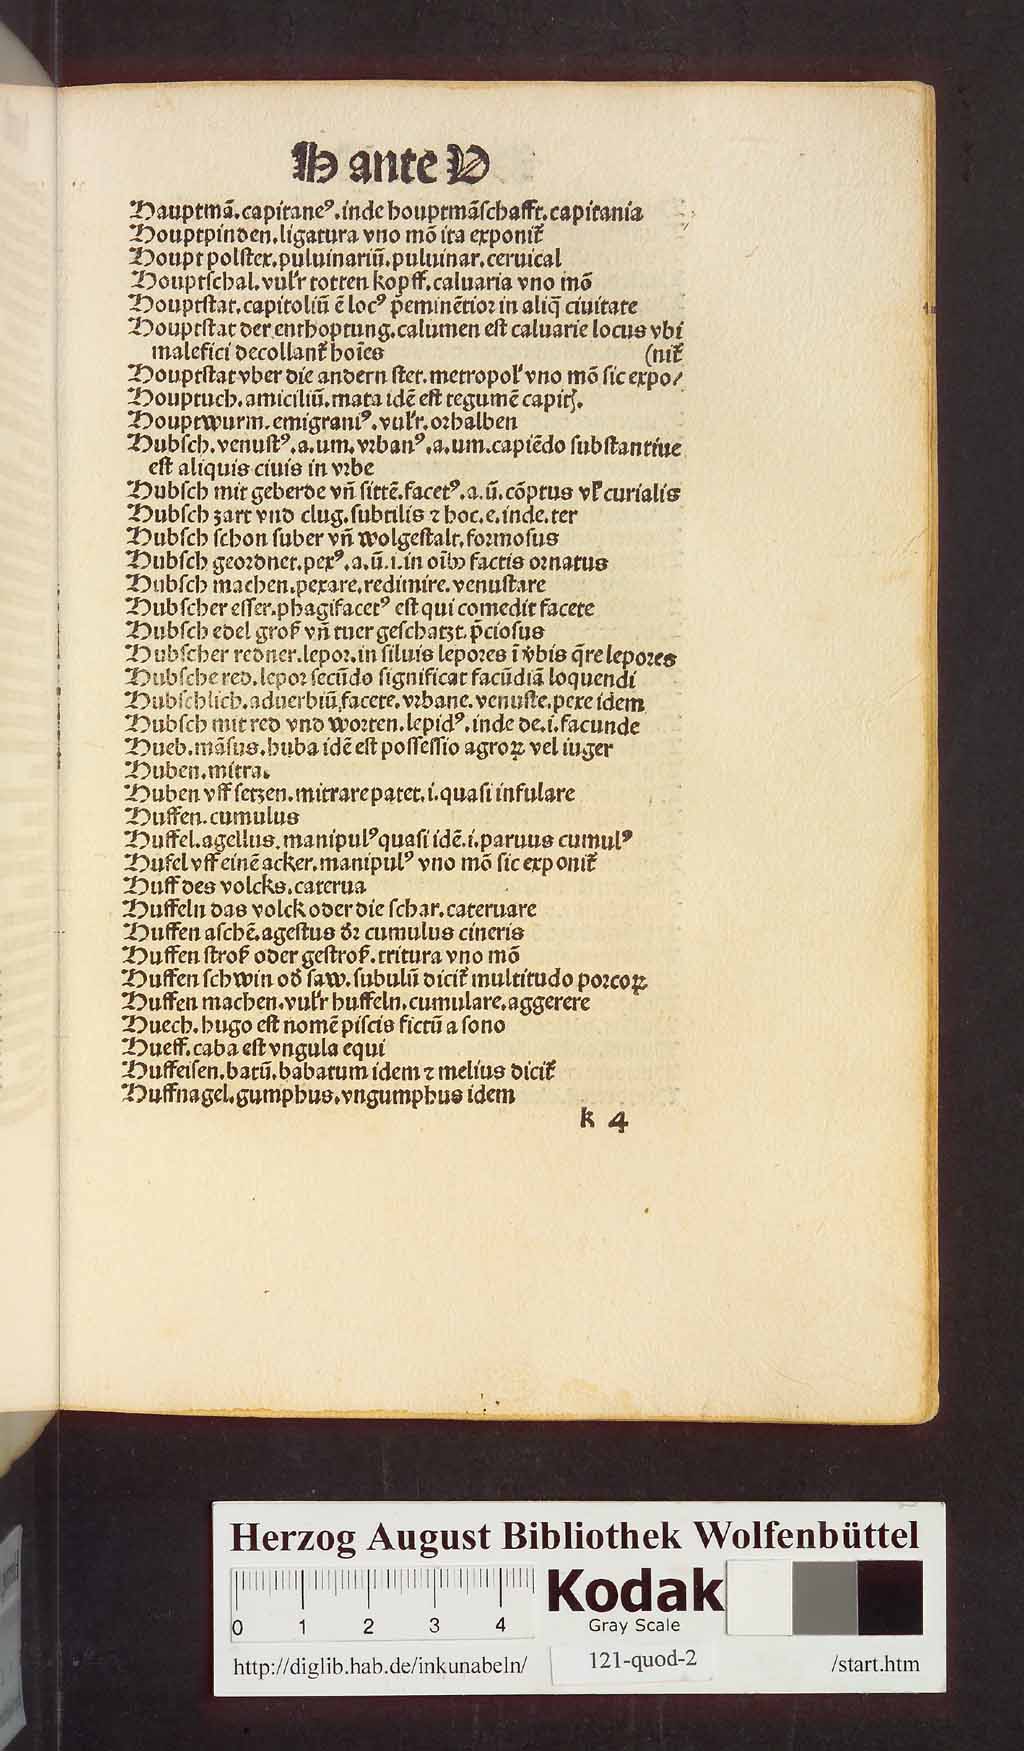 H ante V
Hauptmā.capitaneꝰ.inde houptmāschafft.capitania
Houptpinden.ligatura vno mō ita exponit᷑
Houpt polster.puluinariū.puluinar.ceruical
Houptschal.vulꝰr totten kopff.caluaria vno mō
Houptstat.capitoliū ē locꝰ p̄eminētior in aliq̄ ciuitate
Houptstat der enthoptung.calumen est caluarie locus vbi
malefici decollant᷑ hoīes (nit᷑
Houptstat vber die andern stet.metropol' vno mō sic expo/
Houptuch.amiciliū.mata idē est tegumē capitꝭ.
Houptwurm.emigraniꝰ.vul'r.orhalben
Hubsch.venustꝰ.a.um.vrbanꝰ.a.um.capiēdo substantiue
est aliquis ciuis in vrbe
Hubsch mit geberde vn̄ sittē.facetꝰ.a.ū.cōptus vl' curialis
Hubsch zart vnd clug.subtilis ⁊ hoc.e.inde.ter
Hubsch schon suber vn̄ wolgestalt.formosus
Hubsch geordnet.pexꝰ.a.ū.i.in oībꝫ factis ornatus
Hubsch machen.pexare.redimire.venustare
Hubscher esser.phagifacetꝰ est qui comedit facete
Hubsch edel groß vn̄ tuer geschatzt.p̄ciosus
Hubscher redner.lepor.in siluis lepores ī v̄bis q̄re lepores
Hubsche red.lepor secūdo significat facūdiā loquendi
Hubschlich.aduerbiū.facete.vrbane.venuste.pexe idem
Hubsch mit red vnd worten.lepidꝰ.inde de.i.facunde
Hueb.māsus.huba idē est possessio agroꝝ vel iuger
Huben.mitra.
Huben vff setzen.mitrare patet.i.quasi infulare
Huffen.cumulus
Huffel.agellus.manipulꝰ quasi idē.i.paruus cumulꝰ
Hufel vff einē acker.manipulꝰ vno mō sic exponit᷑
Huff des volcks.caterua
Huffeln das volck oder die schar.cateruare
Huffen aschē.agestus dr̄ cumulus cineris
Huffen stroß oder gestroß.tritura vno mō
Huffen schwin od' saw.subulū dicit᷑ multitudo porcoꝝ
Huffen machen.vul'r huffeln.cumulare.aggerere
Huech.hugo est nomē piscis fictū a sono
Hueff.caba est vngula equi
Huffeisen.batū.babatum idem ⁊ melius dicit᷑
Huffnagel.gumphus.vngumphus idem
k 4
Herzog August Bibliothek Wolfenbüttel
0 1 2 3 4
Kodak
Gray Scale
http://diglib.hab.de/inkunabeln/ 121-quod-2 /start.htm